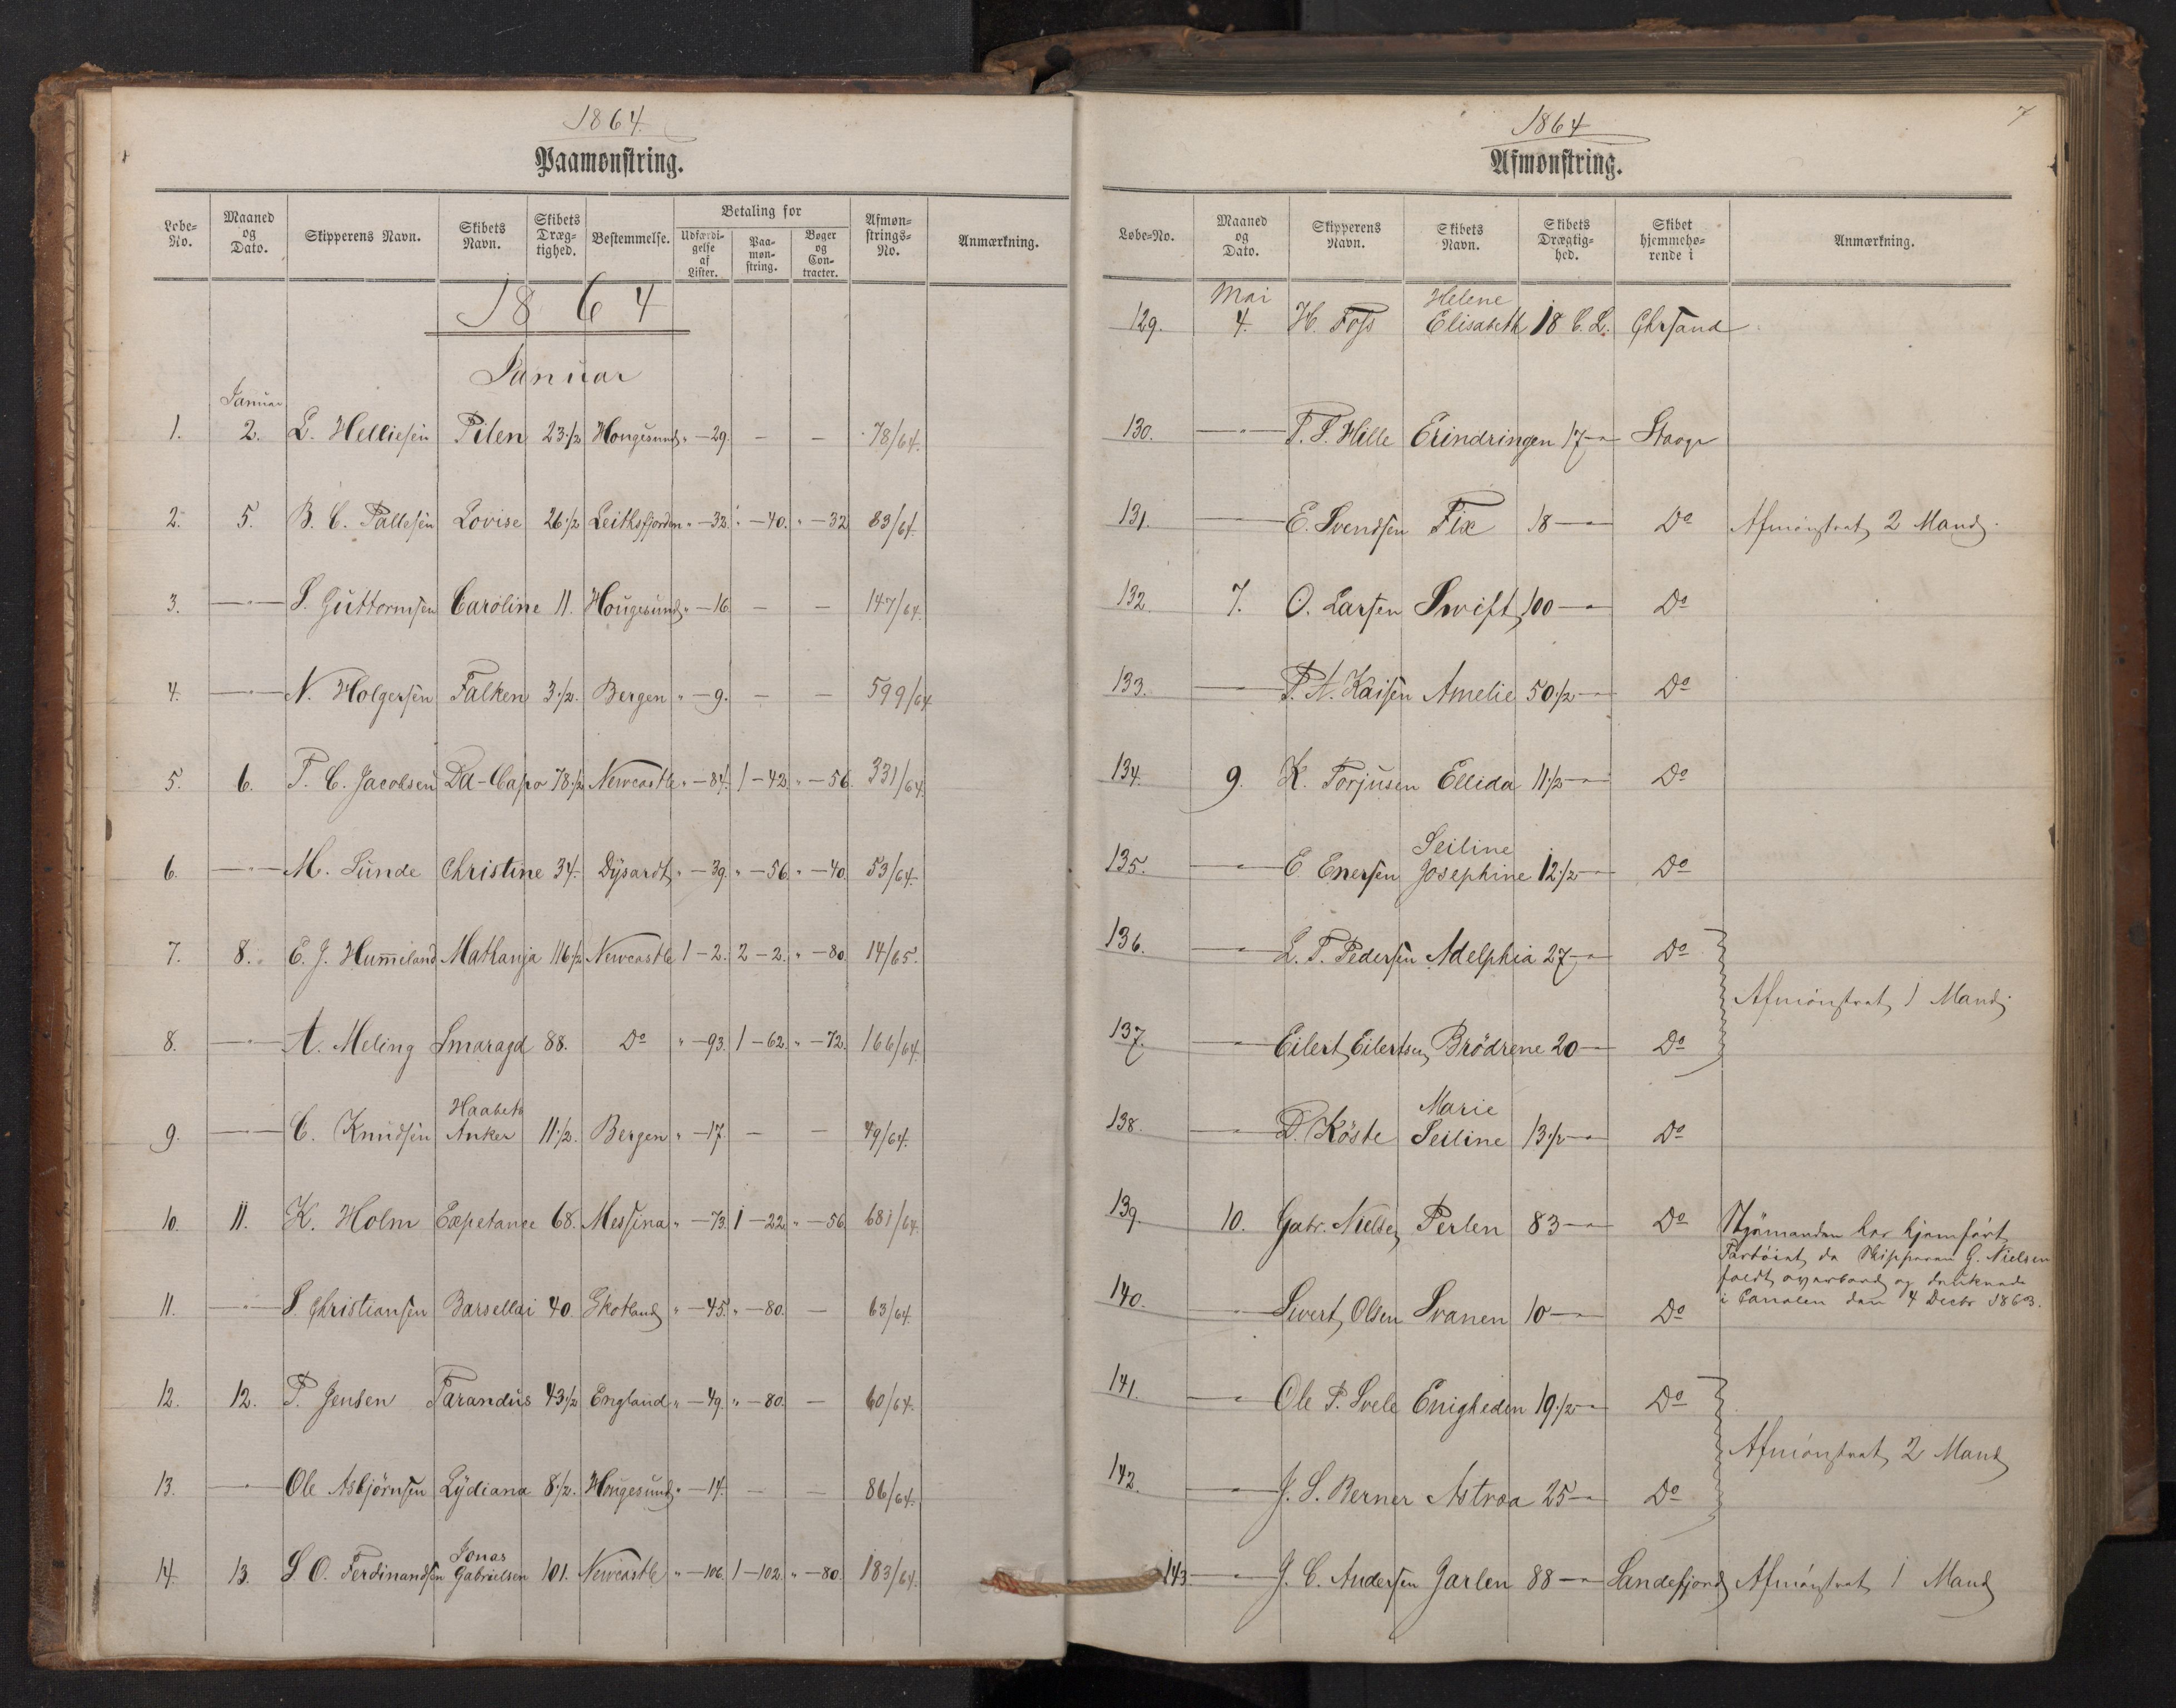 1864.
Paamønstring.
Løbe-No. | Maaned og Dato. | Skipperens Navn. | Skibets Navn. | Skibets Dræg-tighed. | Bestemmelse. | Betaling for | Udfærdi-gelse af Lister. | Paa-møn-string. | Bøger og Con-tracter. | Afmøn-strings-No. | Anmærkning.
1864
Januar
Januar
1. 2. L. Helliesen Pilen 23 1/2 Hougesund " - 29. - - 78/64.
2. 5. B. C. Pallesen Lovise 26 1/2 Leithsfjorden " - 32. " - 40. " - 32 83/64.
3. -"- S. Guttormsen Caroline 11. Hougesund " - 16. - - 147/64.
4. -"- N. Holgersen Falken 3 1/2. Bergen " - 9. - - 599/64
5. 6. T. C. Jacobsen Da-Capo 78 1/2 Newcastle " - 84. 1 - 42. " - 56. 331/64.
6. -"- M. Sunde Christine 34. Dysardt " - 39. " - 56. " - 40. 53/64.
7. 8. E. J. Hummeland Mathanja 116 1/2 Newcastle 1 - 2. 2 - 2. " - 80. 14/65.
8. -"- A. Meling Smaragd 88. Do " - 93. 1 - 62. " - 72. 166/64.
Haabets
9. -"- C. Knudsen Anker 11 1/2. Bergen " - 17. - - 49/64.
10. 11. K. Holm Expetance 68. Messina " - 73. 1 - 22. " - 56. 681/64.
11. -"- S. Christiansen Barsellai 40. Skotland " - 45. " - 80. - 63/64.
12. 12. P. Jensen Tarandus 43 1/2 England " - 49. " - 80. - 60/64.
13. -"- Ole Asbjörnsen Lydiana 8 1/2. Hougesund " - 14. - - 86/64.
Jonas
14. 13. S. O. Ferdinandsen Gabrielsen 101. Newcastle " - 106. 1 - 102. " - 80. 183/64.
7
1864
Afmønstring.
Løbe-No. | Maaned og Dato. | Skipperens Navn. | Skibets Navn. | Skibets Drægtig-hed. | Skibet hjemmehø-rende i | Anmærkning.
Mai Helene
129. 4. H. Foss Elisabeth 18 C. L. Chrsand
130. -"- T. T. Hille Erindringen 17 -"- Stavgr
131. -"- E. Svendsen Fix 18 -"- Do Afmönstret 2 Mand.
132. 7. O. Larsen Swift 100 -"- Do
133. -"- P. A. Kaisen Amelie 50 1/2 -"- Do
134. 9. K. Torjusen Ellida 11 1/2 -"- Do
Seiline
135. -"- E. Enersen Josephine 12 1/2 -"- Do
136. -"- L. T. Pedersen Adelphia 27 -"- Do
Afmönstret 1 Mand.
137. -"- Eilert Eilertsen Brödrene 20 -"- Do
Marie
138. -"- D. Köste Seiline 13 1/2 -"- Do
139. 10. Gabr. Nielsen Perlen 83 -"- Do Styrmanden har hjemført
Fartöiet, da Skipperen G. Nielsen
faldt overbord og druknede
i Canalen den 4 Decbr 1863.
140. -"- Sivert Olsen Svanen 10 -"- Do
141. -"- Ole P. Svele Enigheden 19 1/2 -"- Do
Afmönstret 2 Mand
142. -"- J. S. Berner Astræa 25 -"- Do
143. -"- J. C. Andersen Jarlen 88 -"- Sandefjord Afmönstret 1 Mand